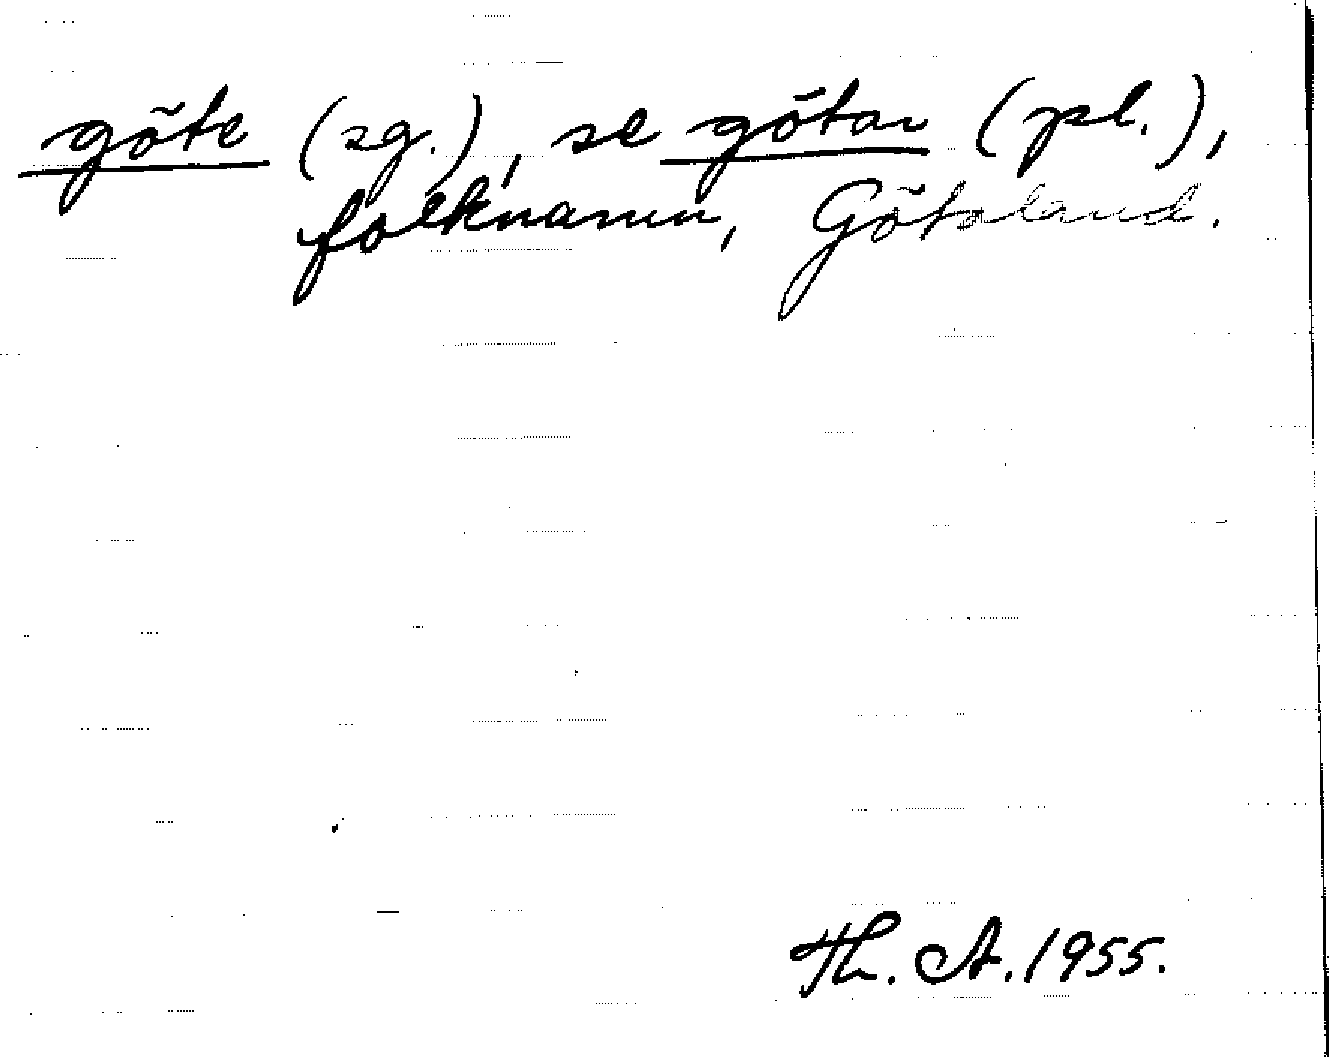 göte (sg.), se götar (pl.),
folknamn, Götaland.
Th. A. 1955.